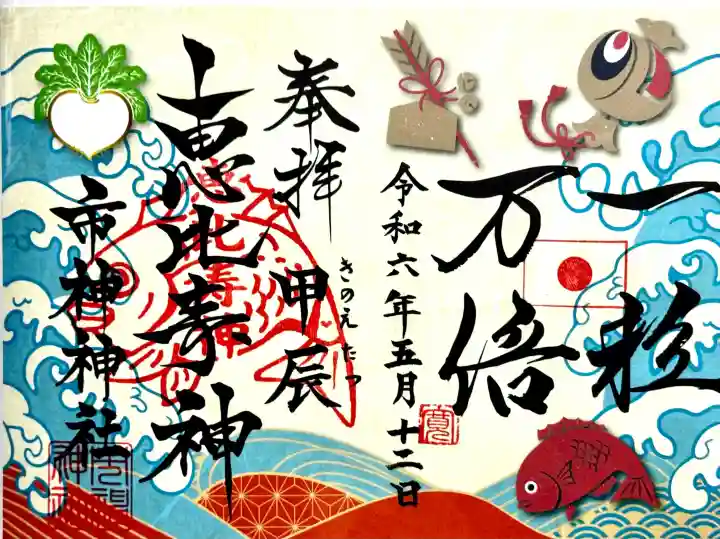 一粒
万倍
令和六年五月十二日
奉拝 甲辰
きのえたつ
恵比寿神
市神神社
恵比寿神